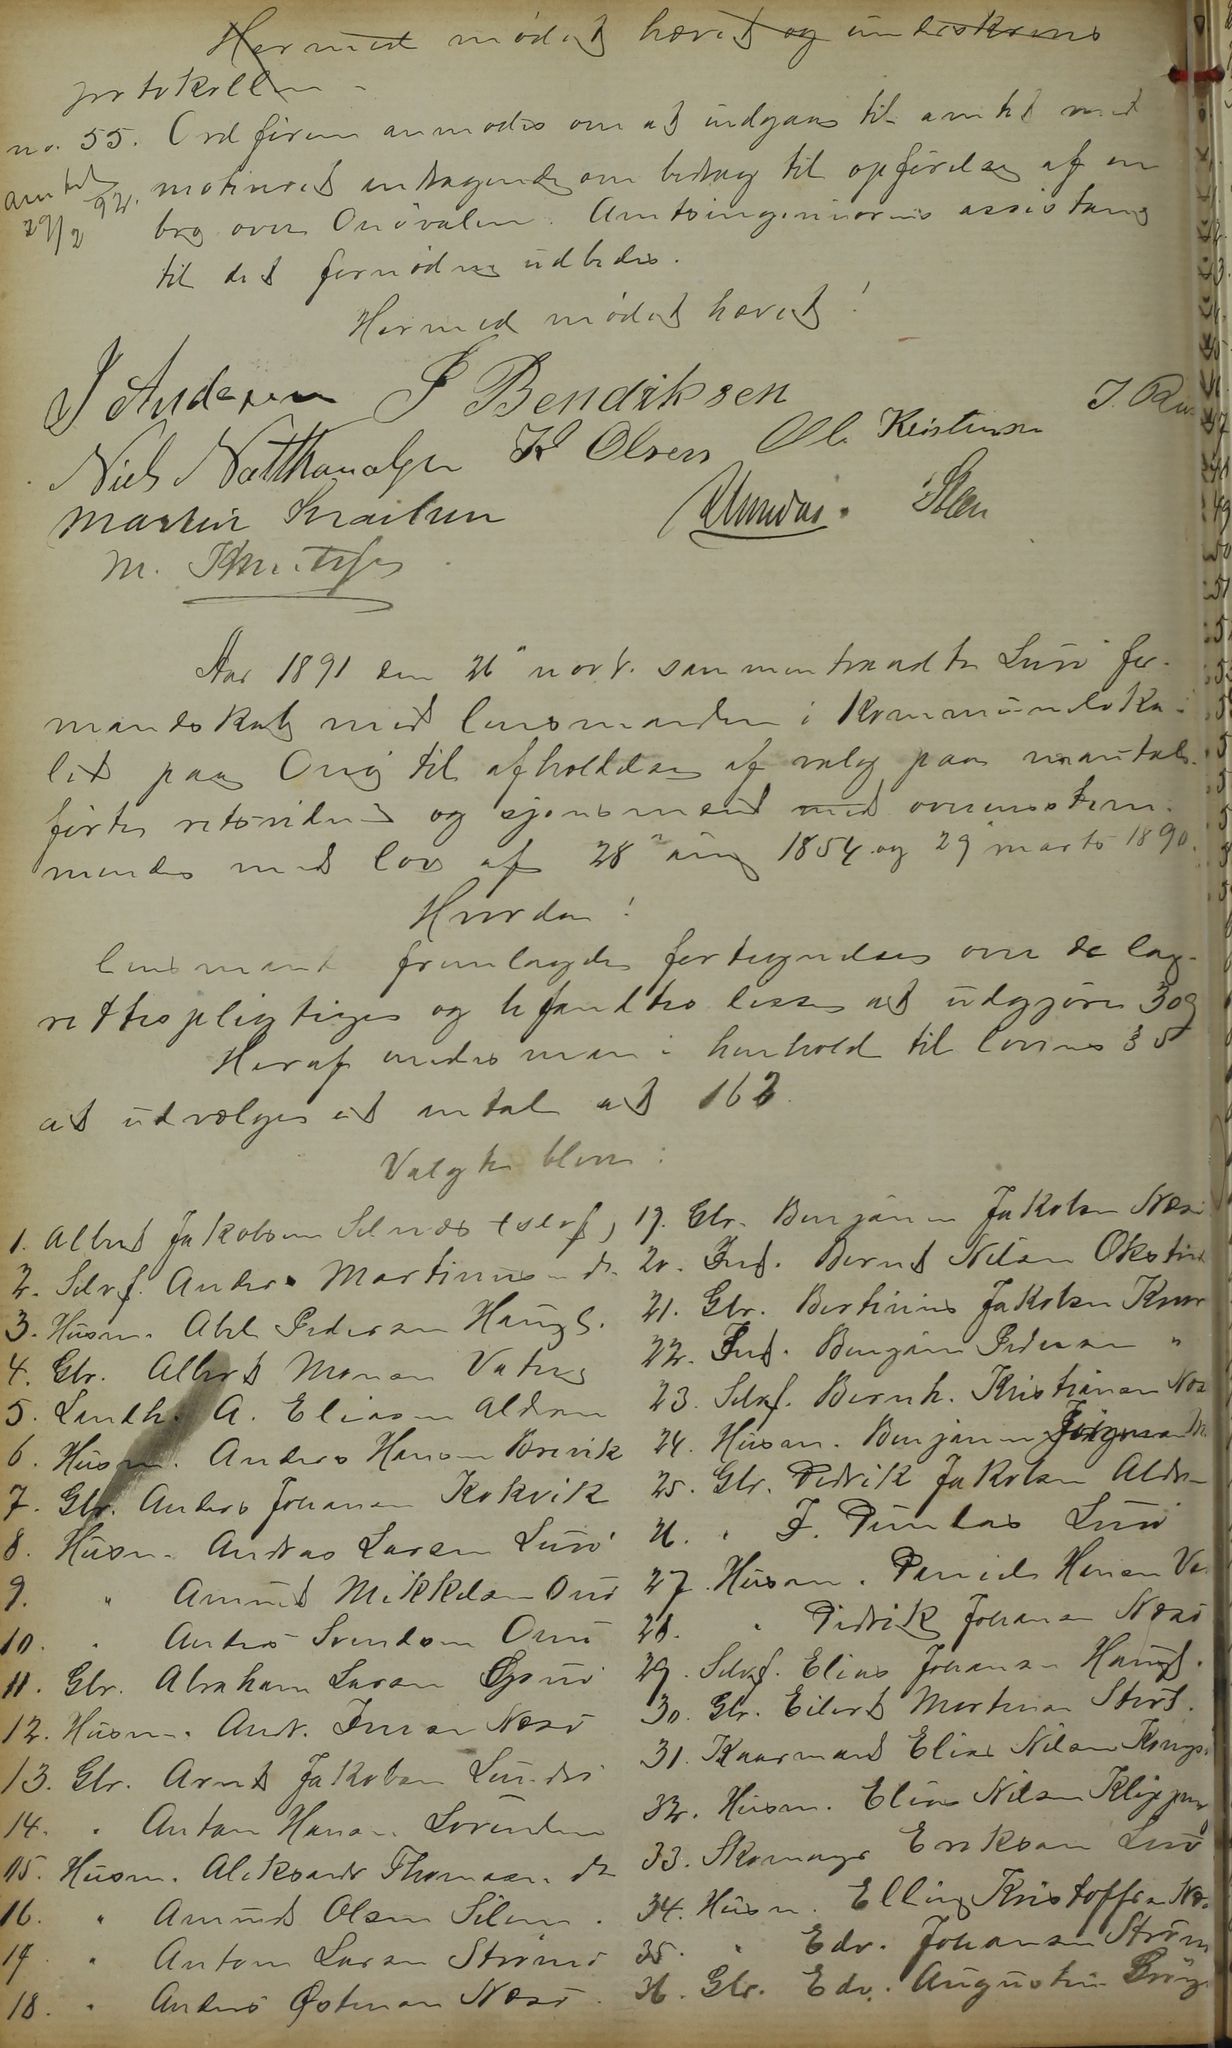 Hermed mødet hævet og underskreves
protokollen.
no. 55. Ordføreren anmodes om at indgaa til amtet med
amtet 29/2 92.
motiveret andragende om bidrag til opførelse af en
bro over Onøvalen. Amtsingeniørens assistance
til det fornødne udbedes.
Hermed mødet hævet!
J Andersen P Bendiksen J. R
Niels Natthanalsen K Olsen Ole Kristensen
Martin Israelsen Amundas. Steen
M. Knutsen
Aar 1891 den 26 novb. sammentraadte Lurø for-
mandskab med lensmanden i kommuneloka-
let paa Onø til afholdelse af valg paa mantals-
førte retsvidner og skjønsmænd med overensstem-
mende med lov af 28 aug 1854 og 29 marts 1890.
Hvorda!
lensmand fremlagde fortegnelse over de lag-
rettespligtige og befandtes disse at udgjøre 309
Heraf ender man i henhold til lovens § 5
at udvælge et antal af 162.
Valgte blev:
1. Albert Jakobsen Selnæs (selvf)
2. Selvf. Anders Martinussen do
3. Husm. Abel Pedersen Haugl.
4. Gbr. Albert Monsen Vatne
5. Landh. A. Eliasen Aldren
6. Husm. Anders Hansen Brevik
7. Gbr. Anders Johansen Kokvik
8. Husm. Andreas Larsen Lurø
9. " Amund Mikkelsen Onø
10. " Anders Svendsen Onø
11. Gbr. Abraham Larsen
12. Husm. Andr. Jensen Næsø
13. Gbr. Arnt Jakobsen
14. " Anton Hansen Lovunden
15. Husm. Aleksander Thomasen do
16. " Amund Olsen Selnæs.
17. " Anton Larsen Strømø
18. " Anders Østman Næsø.
19. Gbr. Benjamin Jakobsen Næsø
20. Ind. Bernt Nilsen Oksti
21. Gbr. Bertinius Jakobsen
22. Ind. Benjamin Pedersen "
23. Selvf. Bernh. Kristiansen
24. Husm. Benjamin Jørgensen
25. Gbr. Didrik Jakobsen Aldren
26. " I. Dundas Lurø
27. Husm. Daniel Hansen Va
28. " Didrik Johansen Næsø
29. Selvf. Elias Johansen Haugl.
30. Gbr. Eilert Mortensen Størs.
31. Kaarmand Elias Nilsen Kongs
32. Husm. Elias Nilsen Klippen
33. Skomager Eriksen Lurø
34. Husm. Elling Kristoffersen Næ.
35. " Edv. Johansen Strøm
36. Gbr. Edv. Augustin